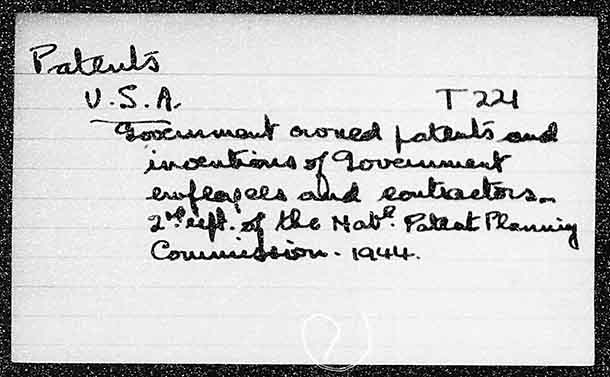 Patents
U.S.A. T 221
Government owned patents and
inventions of Government
employees and contractors.
2nd rept. of the Natl. Patent Planning
Commission. 1944.